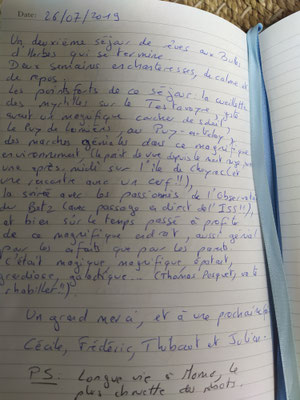 Date: 26/07/2019
Un deuxième séjour de rêves aux Bots
d'Herbes qui se termine.
Deux semaines enchanteresses, de calme et
de repos.
Les points forts de ce séjour : la cueillette
des myrtilles sur le
avant un magnifique coucher de soleil,
le Puy de Lumières, au Puy-en-Velay,
des marches géniales dans ce magnifique
environnement (la point de vue depuis le mont
une après-midi sur l'île de
une rencontre avec un cerf!!),
la soirée avec les passionnés de l'Observatoire
du Betz (avec passage en direct de l'ISS!!),
et bien sûr le temps passé à profiter
de ce magnifique endroit, aussi génial
pour les enfants que pour les parents.
C'était magique, magnifique, épatant,
grandiose, galactique... (Thomas Pesquet, va te
rhabiller!!)
Un grand merci, et à une prochaine
Cécile, Frédéric, Thibaut et Juliane
PS: Longue vie à Momo, le
plus chouette des